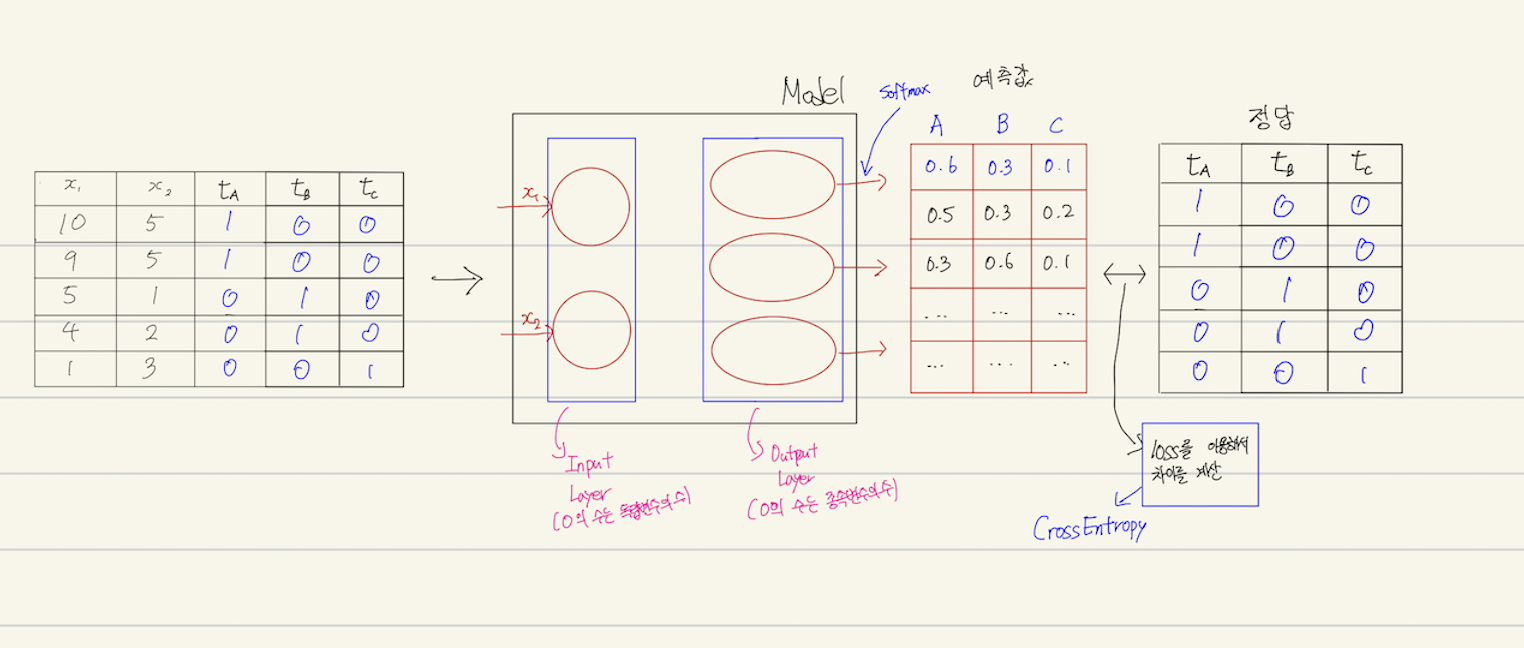 x₁ x₂ t_A t_B t_C
10 5 1 0 0
9 5 1 0 0
5 1 0 1 0
4 2 0 1 0
1 3 0 0 1
Model
x₁
x₂
Input
Layer
(O의 수는 독립변수의 수)
Output
Layer
(O의 수는 종속변수의 수)
Softmax
예측값
A B C
0.6 0.3 0.1
0.5 0.3 0.2
0.3 0.6 0.1
... ... ...
... ... ...
정답
t_A t_B t_C
1 0 0
1 0 0
0 1 0
0 1 0
0 0 1
loss를 이용해서
차이를 계산
CrossEntropy